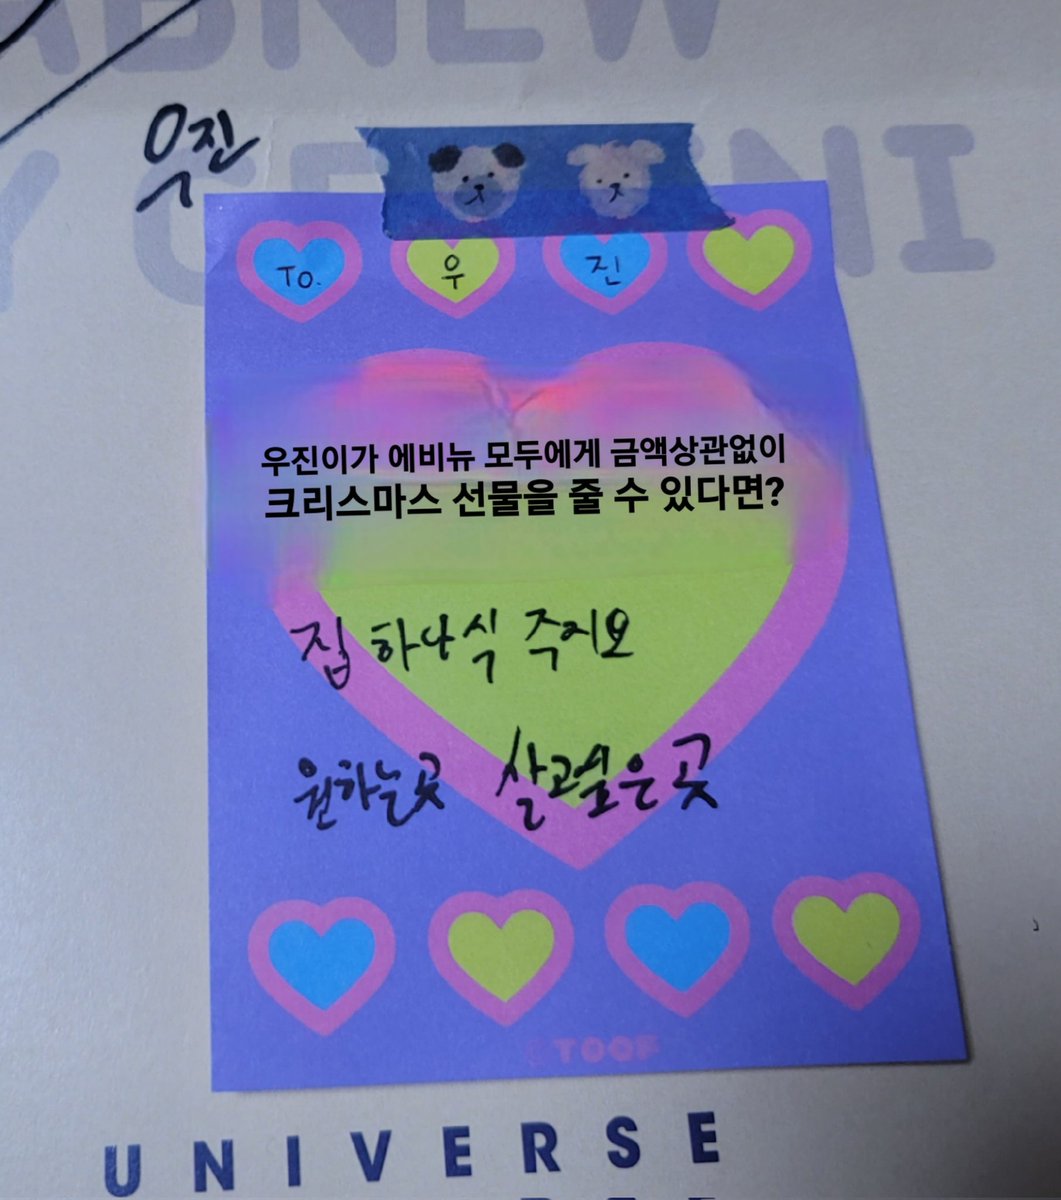 ABNEW
우진
To. 우 진
우진이가 에비뉴 모두에게 금액상관없이
크리스마스 선물을 줄 수 있다면?
집 하나식 주어요
원하는곳 살고싶은곳
TOOF
UNIVERSE